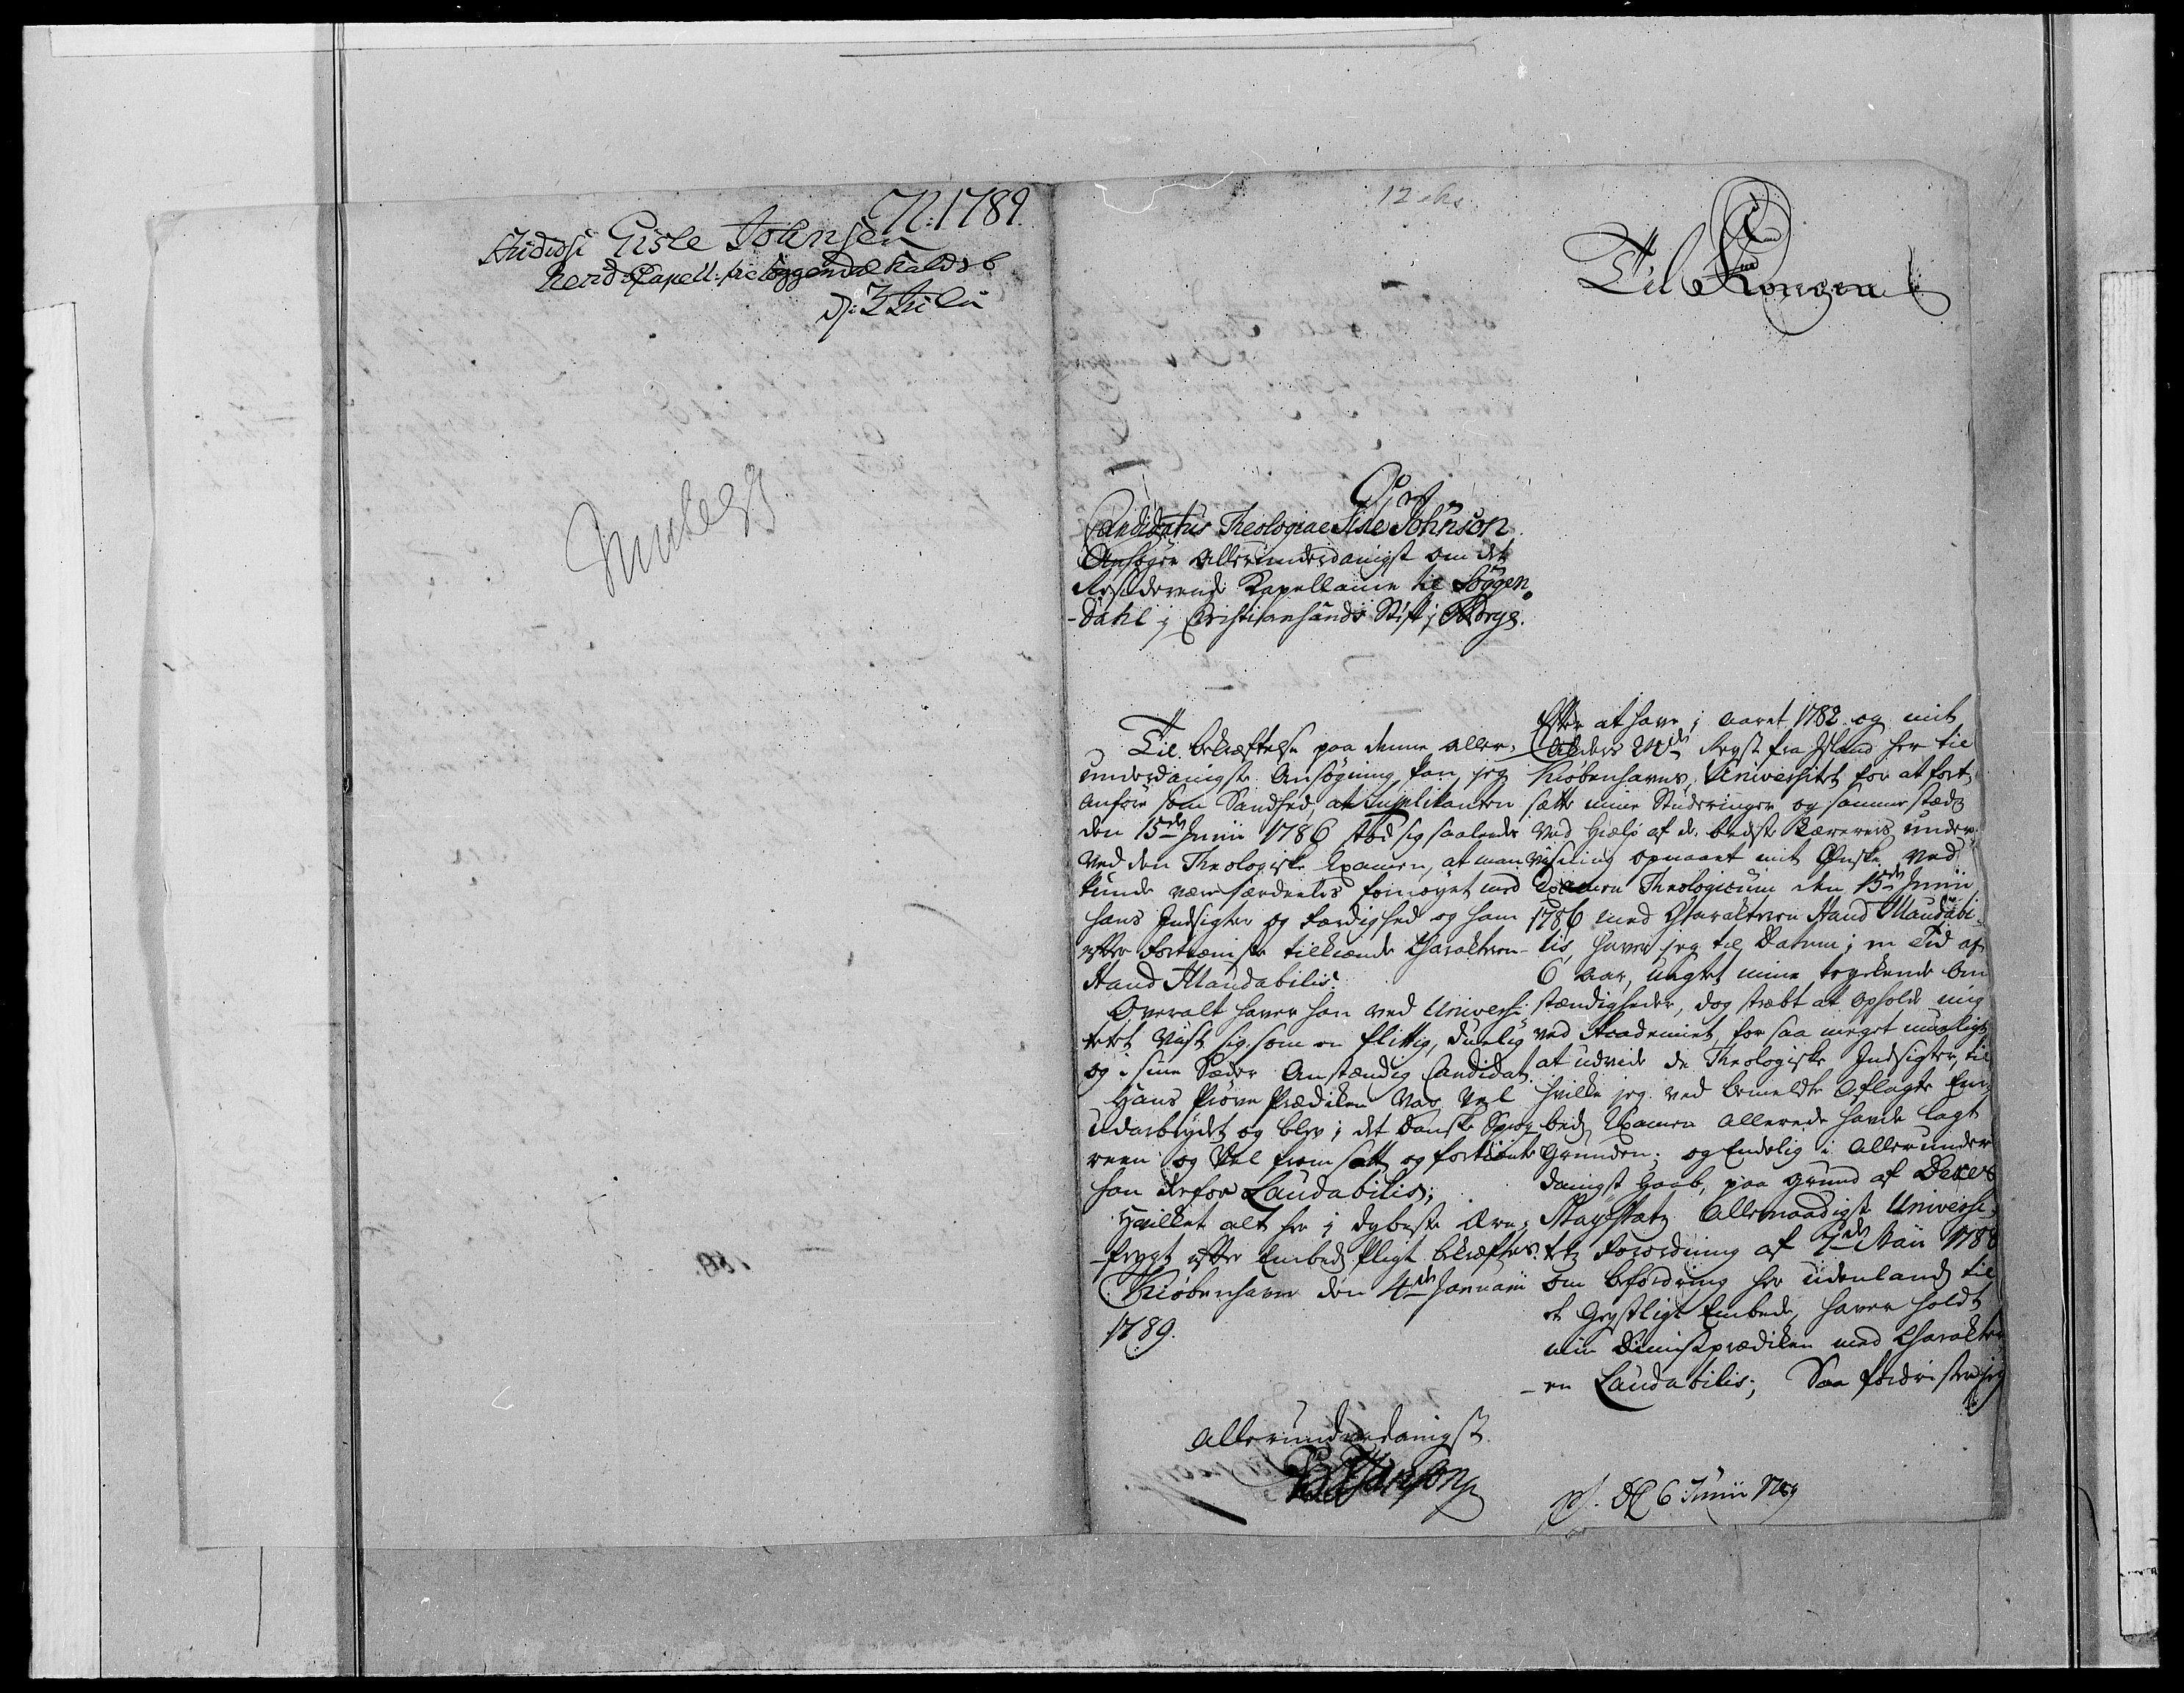 N: 1789.
Studiosi Gisle Johnsen
Resid: Capell: til Soggendal Kald
d: 3 Julii
12 sks.
Til Kongen
Candidatus Theologiae Gisle Johnson
Ansøger allerunderdanigst om det
Residerende Kapellanie til Soggen
-dahl i Christiansands Stift i Norge.
Til bekræftelse paa denne aller-
underdanigste Ansøgning kan jeg
anføre som Sandhed, at Supplikanten
den 15de Junii 1786 stod sig saaledes
ved den Theologiske Examen, at man
kunde være særdeeles fornøyet med
hans Indsigter og Færdighed og ham
efter Fortieneste tilkiende Charakteren
Haud Illaudabilis.
Overalt haver han ved Universi-
tetet viist sig som en flittig, duelig
og i sine Sæder anstændig Candidat.
Hans Prøve Prædiken var vel
udarbeydet og blev i det Danske Sprog
reen og vel fremsatt og fortiente
han derfor Laudabilis;
Hvilket alt her i dybeste Ære-
frygt efter Embeds Pligt bekræftes.
Kiøbenhavn den 4de Januarii
1789.
allerunderdanigst
Efter at have i aaret 1782 og mit
Alders 24de Reyst fra Island her til
Kiøbenhavns Universitet for at fort-
sætte mine Studeringer og sammestæds
ved Hielp af de bedste Læreres under-
visning opnaaet mit Ønske ved
Examen Theologicum den 15de Junii
1786 med Charakteren Haud Illaudabi-
lis, haver jeg til Datum i en Tid af
6 aar, uagtet mine trykkende Om
stændigheder, dog stræbt at opholde mig
ved Academiet, for saa meget mueligt
at udvide de Theologiske Indsigter, til
hvilke jeg ved bemeldte aflagte Em-
beds Examen allerede havde lagt
Grunden; og Endelig i allerunder
danigst Haab, paa Grund af Deres
Mayestætz Allernaadigste Universi-
tetz Forordning af 7de Maii 1788
om befordring her udenlands til
et Geystligt Embede, haver holdt
min Dimisprædiken med Charakter
-en Laudabilis; Saa fordrister jeg
ps. d 6 Junii 1789